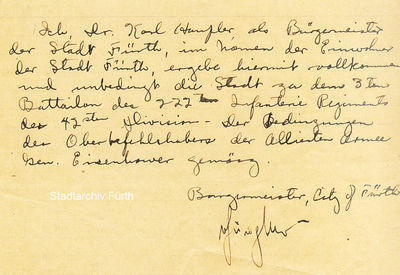 Ich, Dr. Karl Häupler, als Bürgermeister
der Stadt Fürth, im Namen der Einwohner
der Stadt Fürth, ergebe hiermit vollkommen
und unbedingt die Stadt za dem 3ten
Battailon des 222ten Infanterie Regiments
des 42sten Division - den Bedingungen
des Oberbefehlshabers der Allierten Armee
Gen. Eisenhower gemäsz.
Burgermeister, City of Fürth
Stadtarchiv Fürth